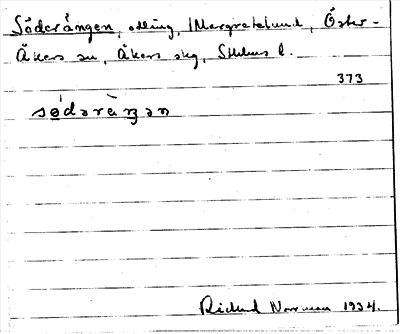 Söderängen, odling, Margretelund, Öster-
Åkers sn, Åkers skg, Sthlms l.
373
södəräŋən
Rickard Norrman 1934.